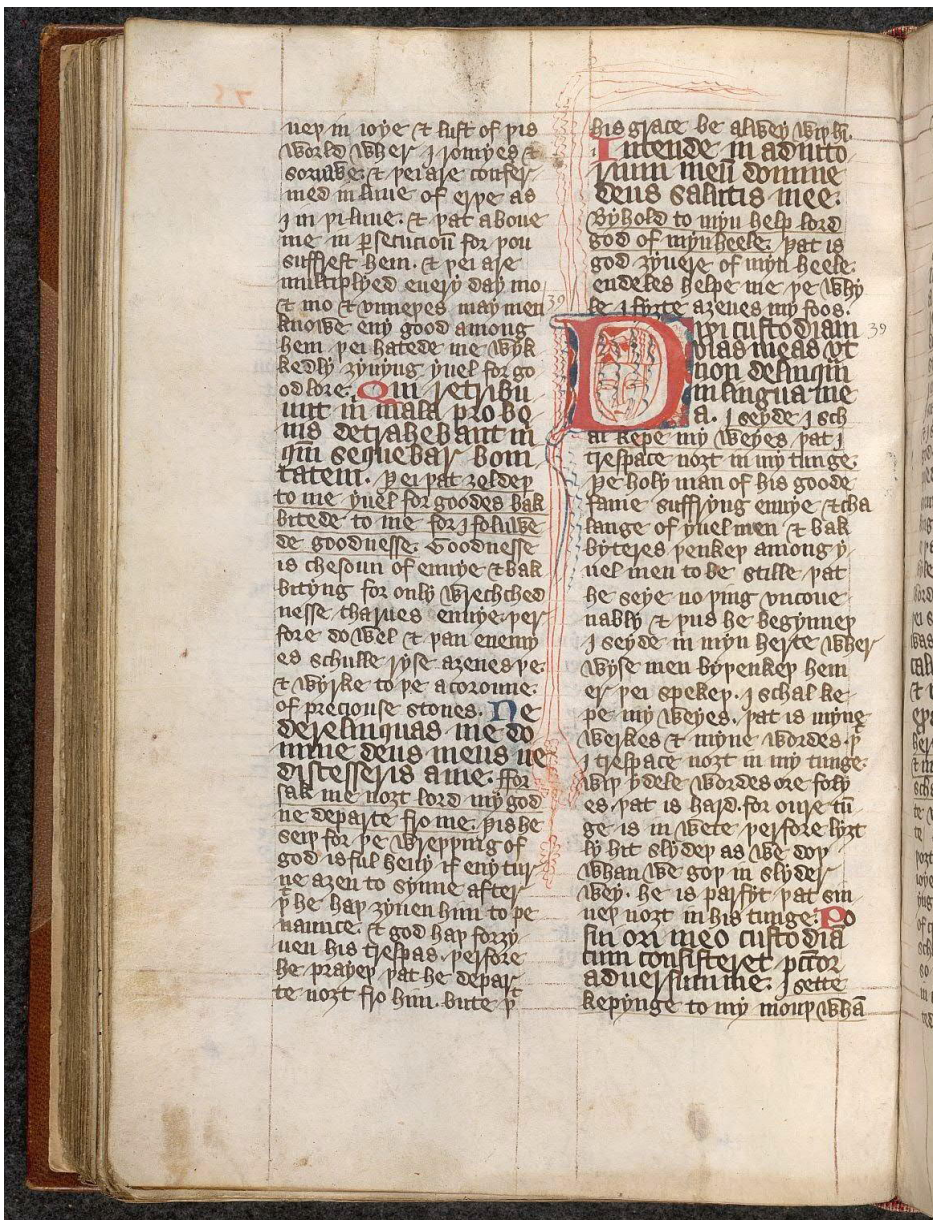 uep in ioye & lust of þis
world wher I iomyes &
soruwe: & þei are confer
med in luue of erþe as
I in þi luue. & þat aboue
me in persecucioū for þou
suffrest hem. & þei are
multiplyed euery day mo
& mo & vnneþes may men
knowe eny good among
hem þei hatede me wyk
kedly zyuyng yuel for go
od lore. Qui retribu
unt in mala pro bo
nis detrahebant m
qm̄ sequebar boni
tatem. Þei þat zeldeþ
to me yuel for goodes bak
bitede to me for I foluwe
de goodnesse. Goodnesse
is chesoun of enuye & bak
bityng for only wrechched
nesse charues enuye. þer
fore do wel & þan enemy
es schulle ryse azenes þe.
& wyrke to þe a coroune.
of preciouse stones. Ne
derelinquas me do
mine deus meus ne
discesseris a me. ffor
sak me nozt lord my god
ne departe fro me. Þis he
seiþ for þe wreþþing of
god is ful heuy if eny tur
ne azen to synne after
þt he haþ zyuen him to pe
naunce. & god haþ forzy
uen his trespas. þerfore
he prayeþ þat he depar
te nozt fro him. bute þt
his grace be alwey wiþ hī.
Intende in adiuto
rium meū domine
deus salutis mee.
Byhold to myn help lord
god of myn heele. þat is
god zyuere of myn heele.
endeles helpe me þe why
le I fyzte azenes my foos.
39
Dixi custodiam 39
vias meas vt
non delinqm̄
in lingua me
a. I seyde I sch
al kepe my weyes þat I
trespace nozt in my tunge.
Þe holy man of his goode
fame suffryng enuye & cha
lange of yuel men & bak
byteres þenkeþ among y
uel men to be stille þat
he seye no þing vncoue
nably & þus he begynneþ
I seyde in myn herte wher
wyse men byþenkeþ hem
er þei spekeþ. I schal ke
pe my weyes. þat is myne
werkes & myne wordes. þt
I trespace nozt in my tunge.
wiþ ydele wordes ore foly
es. þat is hard. for oure tū
ge is in wete þerfore lyzt
ly hit slydeþ as we doþ
whan we goþ in slyder
wey. he is parfyt þat sin
neþ nozt in his tunge. Po
sui ori meo custodiā
cum consisteret pctor
aduersum me. I sette
kepynge to my mouþ whā